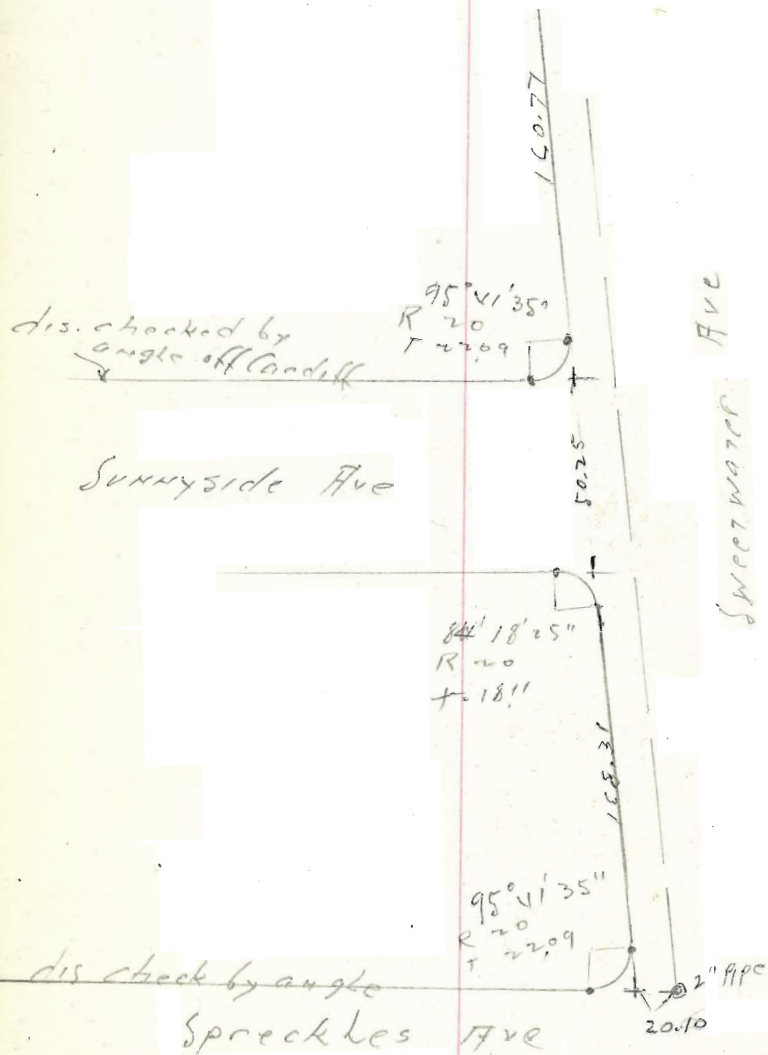 160.77
95° 41' 35"
R 20
T 22.09
dis. checked by
angle off Cardiff
Ave
Sweetwater
50.25
Sunnyside Ave
84° 18' 25"
R 20
T 18.11
138.31
95° 41' 35"
R 20
T 22.09
dis check by angle
2" PIPE
20.10
Spreckles Ave